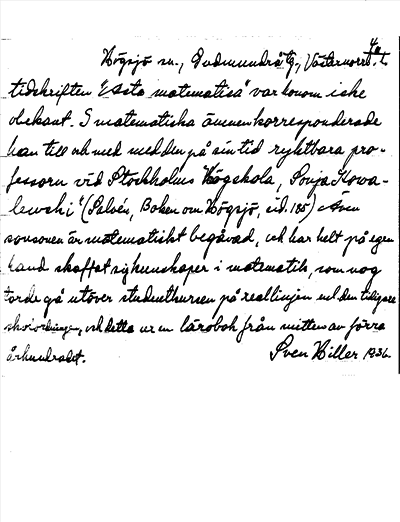 Högsjö sn., Gudmundrå tg, Västernorrl. l.
tidskriften "Acta matematica" var honom icke
obekant. I matematiska ämnen korresponderade
han till och med med den på sin tid ryktbara pro-
fessorn vid Stockholms Högskola, Sonja Kowa-
lewski" (Salvén, Boken om Högsjö, sid. 185) Även
sonsonen är matematiskt begåvad, och har helt på egen
hand skaffat sig kunskaper i matematik, som nog
torde gå utöver studentkursen på reallinjen enl. den tidigare
skolordningen, och detta ur en lärobok från mitten av förra
århundradet. Sven Hiller 1936.